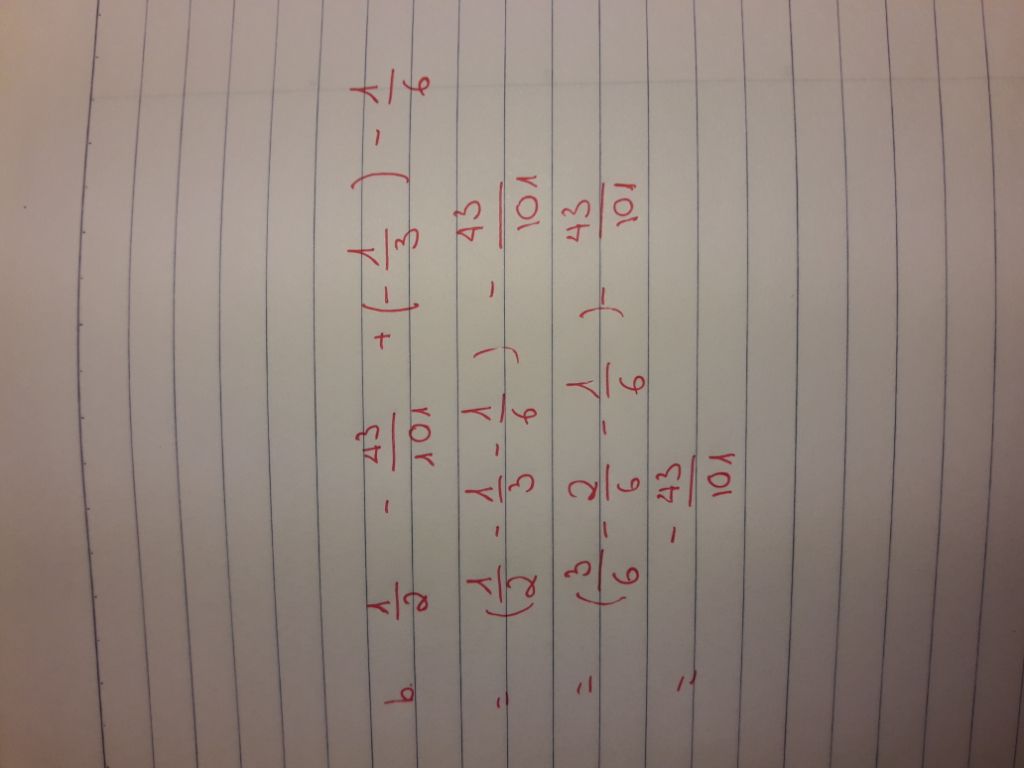 b. 1/2 - 43/101 + (- 1/3) - 1/6
= (1/2 - 1/3 - 1/6) - 43/101
= (3/6 - 2/6 - 1/6) - 43/101
= - 43/101